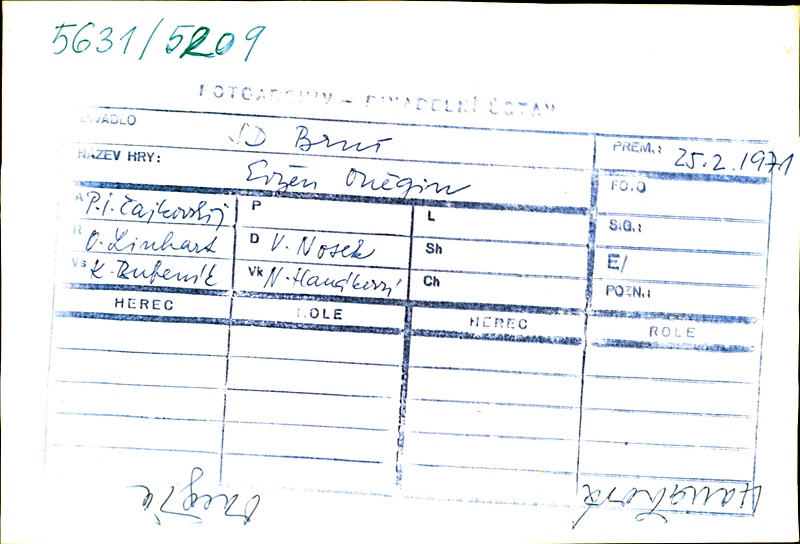 5631/5209
FOTOARCHIV – DIVADELNÍ ÚSTAV
DIVADLO SD Brno PREM.: 25.2.1971
NÁZEV HRY: Evžen Oněgin FO.O
A P.I. Čajkovskij P L SIG.:
R O. Linhart D V. Nosek Sh E/
Vs K. Bubeník Vk N. Hanáková Ch POZN.:
HEREC ROLE HEREC ROLE